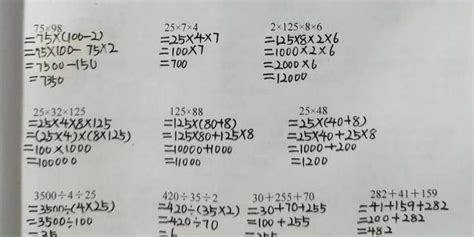 75×98
=75×(100-2)
=75×100-75×2
=7500-150
=7350
25×7×4
=25×4×7
=100×7
=700
2×125×8×6
=125×8×2×6
=1000×2×6
=2000×6
=12000
25×32×125
=25×4×8×125
=(25×4)×(8×125)
=100×1000
=100000
125×88
=125×(80+8)
=125×80+125×8
=10000+1000
=11000
25×48
=25×(40+8)
=25×40+25×8
=1000+200
=1200
3500÷4÷25
=3500÷(4×25)
=3500÷100
=35
420÷35÷2
=420÷(35×2)
=420÷70
=6
30+255+70
=30+70+255
=100+255
282+41+159
=41+159+282
=200+282
=482